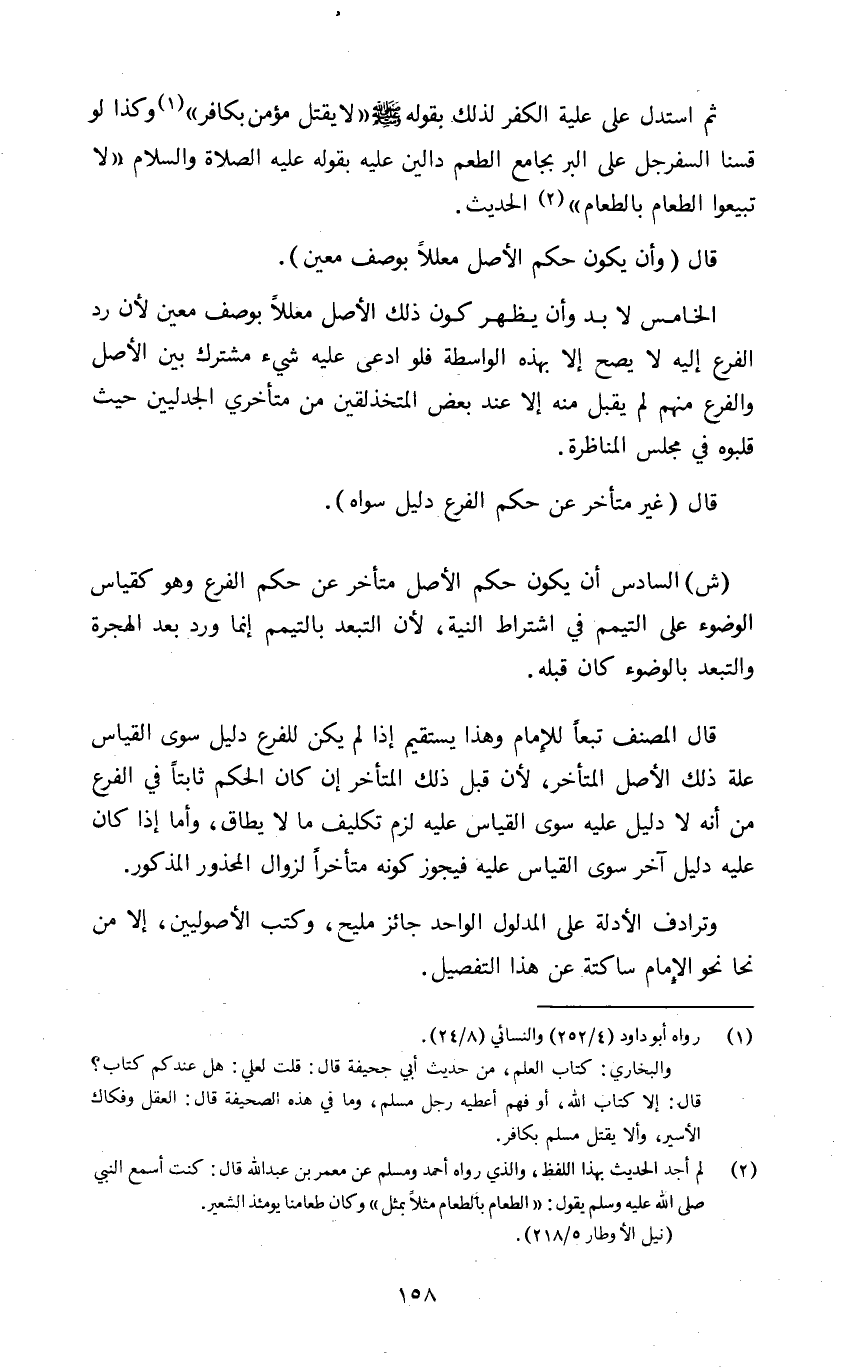 ثم استدل على علية الكفر لذلك بقوله ﷺ «لا يقتل مؤمن بكافر»(١) وكذا لو
قسنا السفرجل على البر بجامع الطعم دالين عليه بقوله عليه الصلاة والسلام «لا
تبيعوا الطعام بالطعام»(٢) الحديث.
قال (وأن يكون حكم الأصل معللاً بوصف معين).
الخامس لا بد وأن يظهر كون ذلك الأصل معللاً بوصف معين لأن رد
الفرع إليه لا يصح إلا بهذه الواسطة فلو ادعى عليه شيء مشترك بين الأصل
والفرع منهم لم يقبل منه إلا عند بعض المتخذلقين من متأخري الجدليين حيث
قلبوه في مجلس المناظرة.
قال (غير متأخر عن حكم الفرع دليل سواه).
(ش) السادس أن يكون حكم الأصل متأخر عن حكم الفرع وهو كقياس
الوضوء على التيمم في اشتراط النية، لأن التبعد بالتيمم إنما ورد بعد الهجرة
والتبعد بالوضوء كان قبله.
قال المصنف تبعاً للإمام وهذا يستقيم إذا لم يكن للفرع دليل سوى القياس
علة ذلك الأصل المتأخر، لأن قبل ذلك المتأخر إن كان الحكم ثابتاً في الفرع
من أنه لا دليل عليه سوى القياس عليه لزم تكليف ما لا يطاق، وأما إذا كان
عليه دليل آخر سوى القياس عليه فيجوز كونه متأخراً لزوال المحذور المذكور.
وترادف الأدلة على المدلول الواحد جائز مليح، وكتب الأصوليين، إلا من
نحا نحو الإمام ساكتة عن هذا التفصيل.
(١) رواه أبو داود (٢٥٢/٤) والنسائي (٢٤/٨).
والبخاري: كتاب العلم، من حديث أبي جحيفة قال: قلت لعلي: هل عندكم كتاب؟
قال: إلا كتاب الله، أو فهم أعطيه رجل مسلم، وما في هذه الصحيفة قال: العقل وفكاك
الأسير، وألا يقتل مسلم بكافر.
(٢) لم أجد الحديث بهذا اللفظ، والذي رواه أحمد ومسلم عن معمر بن عبدالله قال: كنت أسمع النبي
صلى الله عليه وسلم يقول: «الطعام بالطعام مثلاً بمثل» وكان طعامنا يومئذ الشعير.
(نيل الأوطار ٢١٨/٥).
١٥٨